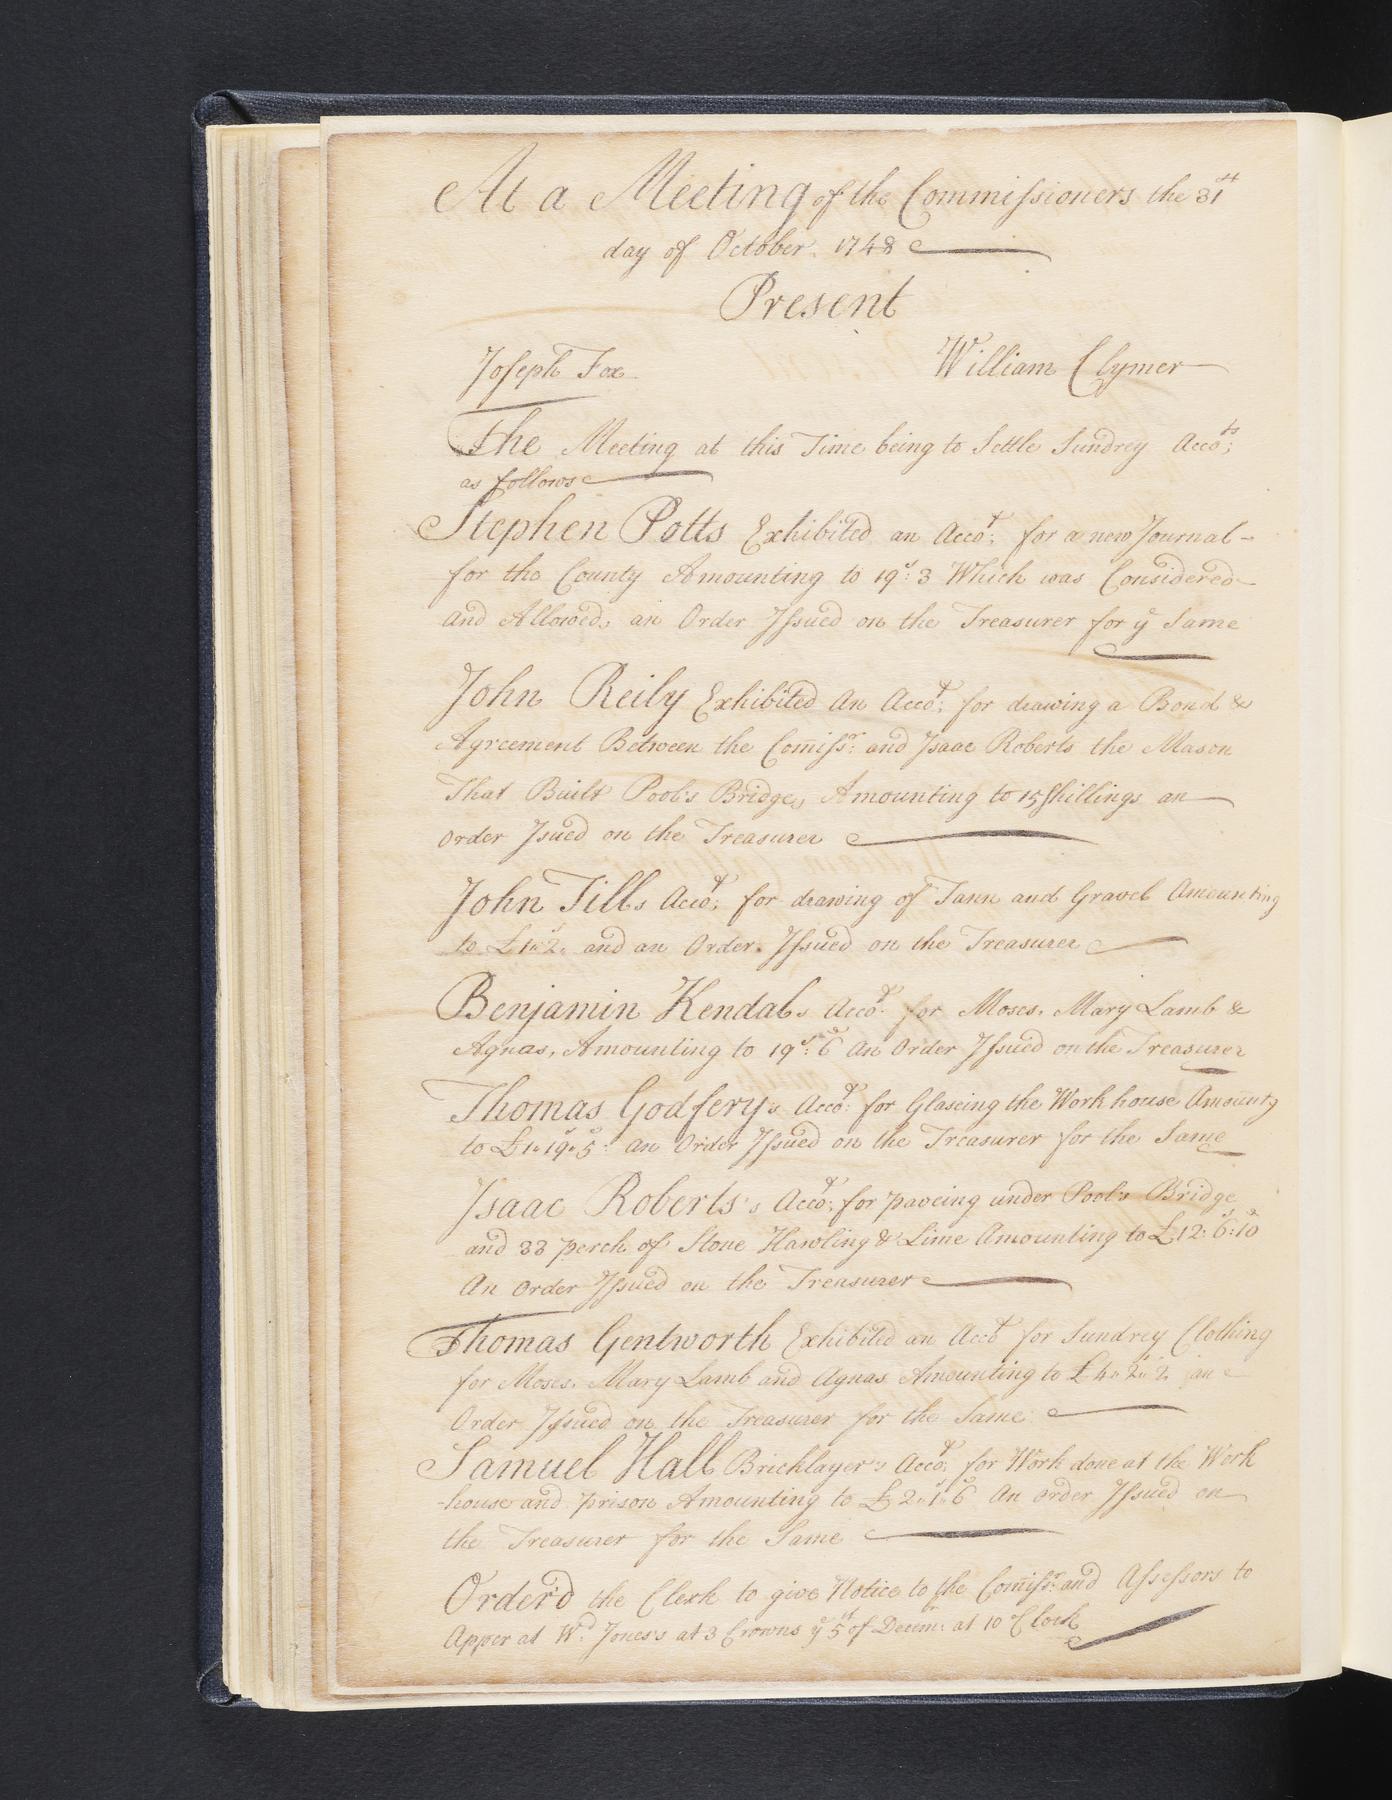 At a Meeting of the Commissioners the 31st
day of October 1748
Present
Joseph Fox William Clymer
The Meeting at this Time being to Settle Sundrey Accots;
as follows
Stephen Potts Exhibited an Accot; for a new Journal -
for the County Amounting to 19s: 3 Which was Considered
and Allowed, an Order Issued on the Treasurer for ye Same
John Reily Exhibited An Accot; for drawing a Bond &
Agreement Between the Comissrs: and Isaac Roberts the Mason
That Built Pool's Bridge, Amounting to 15 Shillings an
order Isued on the Treasurer
John Tills Accot; for drawing of Tann and Gravel Amounting
to £1"2, and an Order Issued on the Treasurer
Benjamin Kendals Accot: for Moses, Mary Lamb &
Agnas, Amounting to 19s: 6d An Order Issued on the Treasurer
Thomas Godfery's Accot: for Glaseing the Work house Amountg
to £1"19"5: an Order Issued on the Treasurer for the Same
Isaac Roberts's Accot; for paveing under Pool's Bridge
and 33 perch of Stone Hawling & Lime Amounting to £12:6:10
An Order Issued on the Treasurer
Thomas Gentworth Exhibited an Accot for Sundrey Clothing
for Moses, Mary Lamb and Agnas Amounting to £4"2"2 an
Order Issued on the Treasurer for the Same
Samuel Hall Bricklayer's Accot; for Work done at the Work
-house and prison Amounting to £2"1"6 An order Issued on
the Treasurer for the Same
Order'd the Clerk to give Notice to the Comissrs: and Assessors to
Apper at Wd: Jones's at 3 Crowns ye 5th of Decemr: at 10 o'Clock